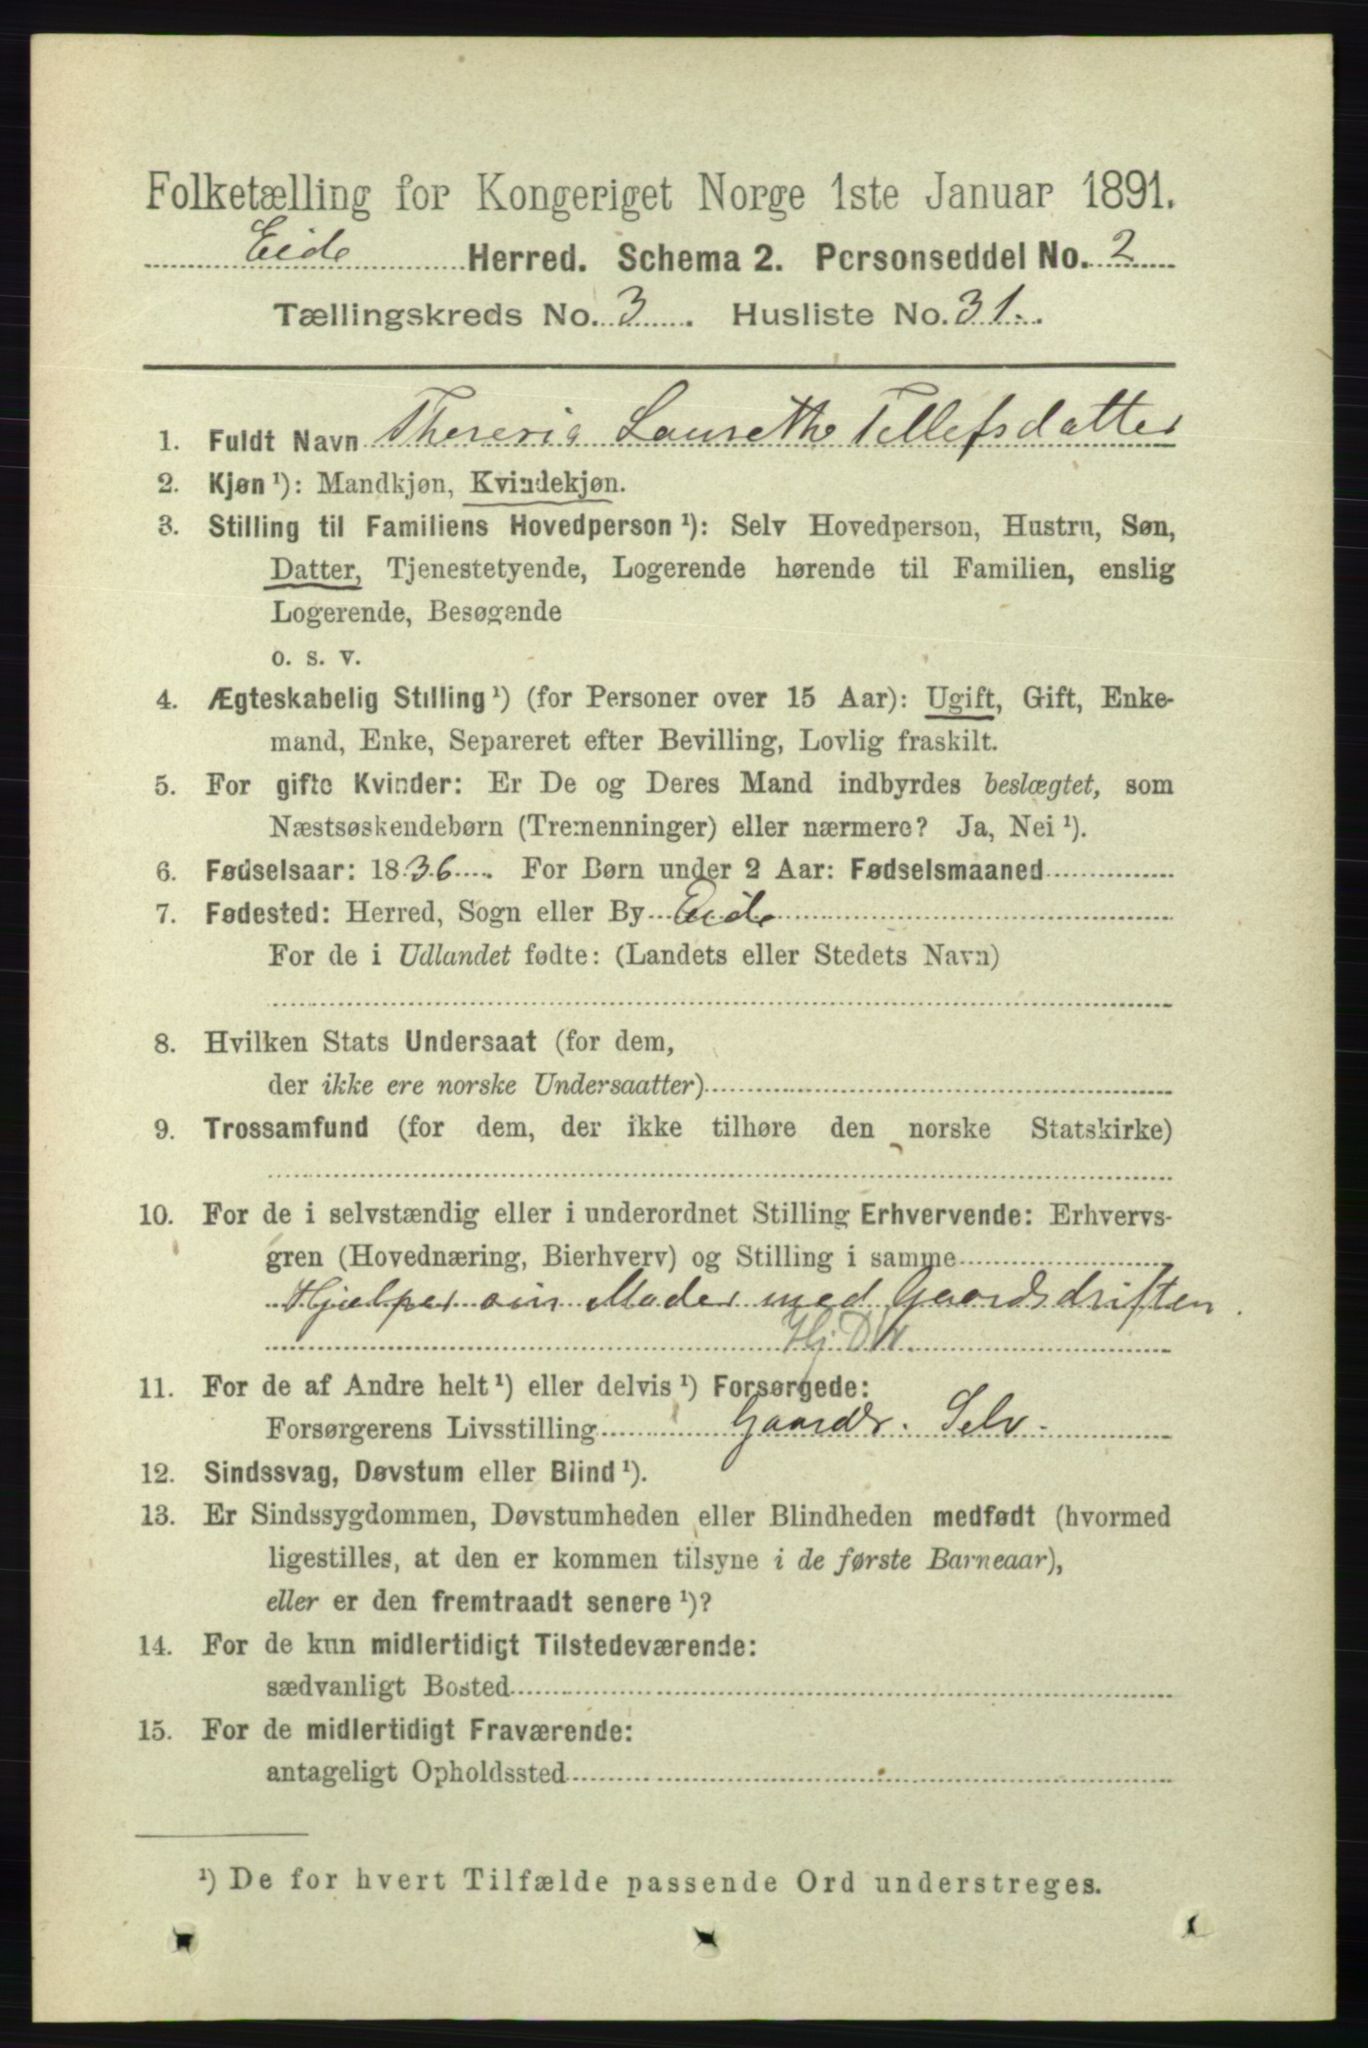 Folketælling for Kongeriget Norge 1ste Januar 1891.
Eide Herred. Schema 2. Personseddel No. 2
Tællingskreds No. 3. Husliste No. 31.
1. Fuldt Navn Theresia Laurethe Tellefsdatter
2. Kjøn ¹): Mandkjøn, Kvindekjøn.
3. Stilling til Familiens Hovedperson ¹): Selv Hovedperson, Hustru, Søn,
Datter, Tjenestetyende, Logerende hørende til Familien, enslig
Logerende, Besøgende
o. s. v.
4. Ægteskabelig Stilling ¹) (for Personer over 15 Aar): Ugift, Gift, Enke-
mand, Enke, Separeret efter Bevilling, Lovlig fraskilt.
5. For gifte Kvinder: Er De og Deres Mand indbyrdes beslægtet, som
Næstsøskendebørn (Tremenninger) eller nærmere? Ja, Nei ¹).
6. Fødselsaar: 1836. For Børn under 2 Aar: Fødselsmaaned
7. Fødested: Herred, Sogn eller By Eide
For de i Udlandet fødte: (Landets eller Stedets Navn)
8. Hvilken Stats Undersaat (for dem,
der ikke ere norske Undersaatter)
9. Trossamfund (for dem, der ikke tilhøre den norske Statskirke)
10. For de i selvstændig eller i underordnet Stilling Erhvervende: Erhvervs-
gren (Hovednæring, Bierhverv) og Stilling i samme
Hjælper sin Moder med Gaardsdriften.
Hj.
11. For de af Andre helt ¹) eller delvis ¹) Forsørgede:
Forsørgerens Livsstilling Gaardbr. Selv.
12. Sindssvag, Døvstum eller Blind ¹).
13. Er Sindssygdommen, Døvstumheden eller Blindheden medfødt (hvormed
ligestilles, at den er kommen tilsyne i de første Barneaar),
eller er den fremtraadt senere ¹)?
14. For de kun midlertidigt Tilstedeværende:
sædvanligt Bosted
15. For de midlertidigt Fraværende:
antageligt Opholdssted
¹) De for hvert Tilfælde passende Ord understreges.